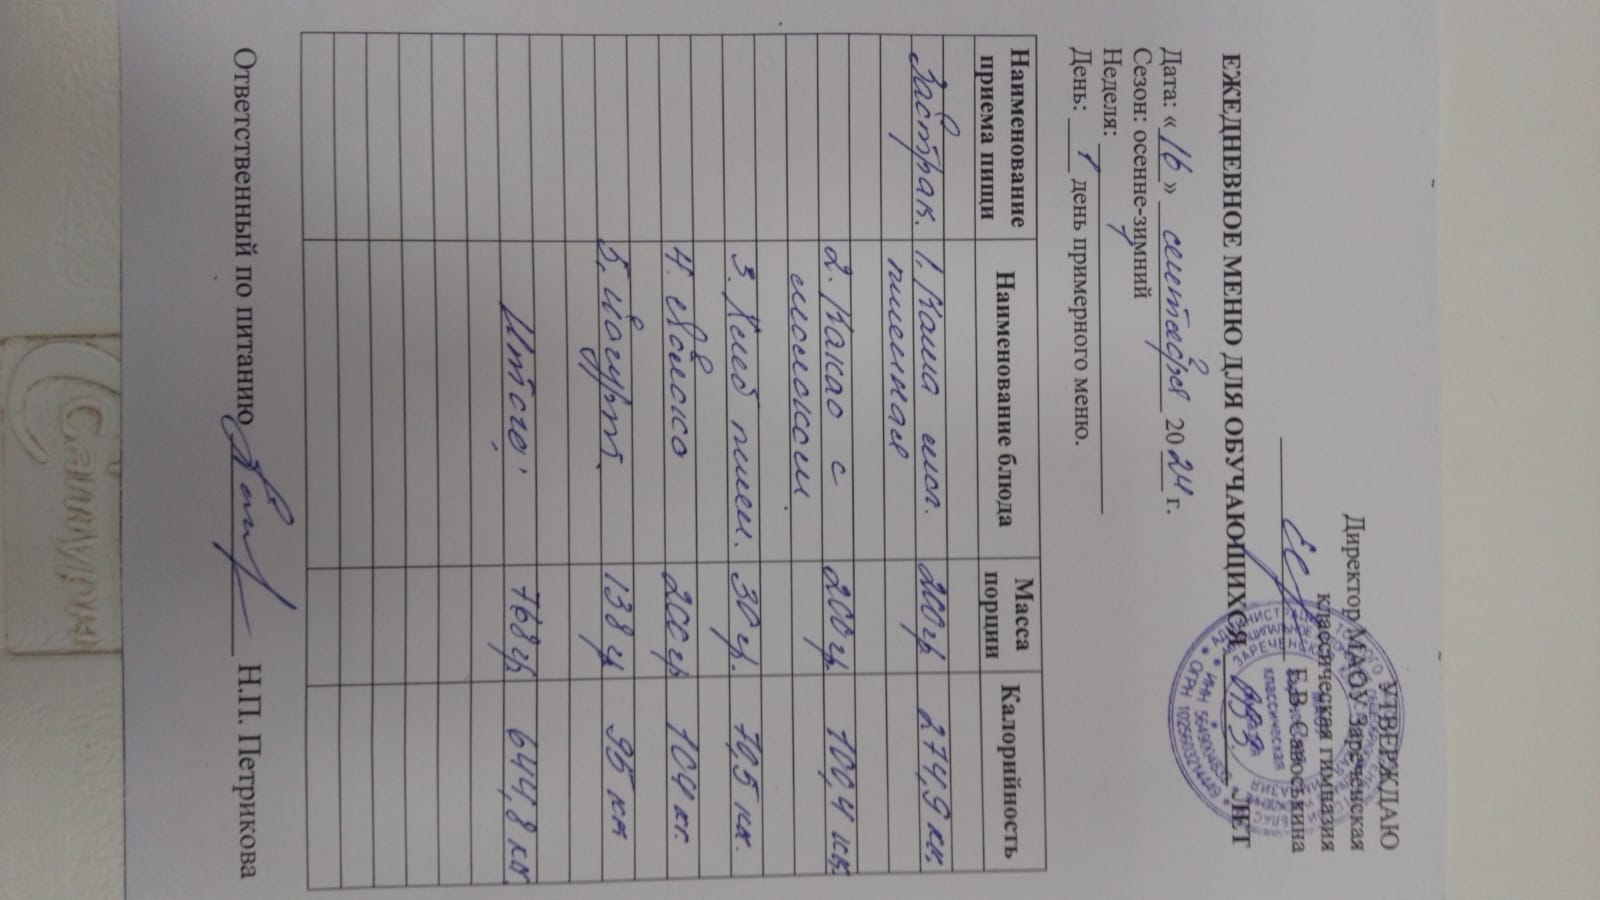 УТВЕРЖДАЮ
Директор МАОУ Зареченская
классическая гимназия
Е.В. Савоськина
ЕЖЕДНЕВНОЕ МЕНЮ ДЛЯ ОБУЧАЮЩИХСЯ ЛЕТ
Дата: «16» сентября 2024 г.
Сезон: осенне-зимний
Неделя: 1
День: 1 день примерного меню.
Наименование приема пищи Наименование блюда Масса порции Калорийность
Завтрак. 1. Каша мол. 200гр 274,9 кк.
пшенная
2. Какао с 200гр. 100,4 кк.
молоком.
3. Хлеб пшен. 30гр. 70,5 кк.
4. Яблоко 200гр 104 кг.
5. Йогурт. 138 гр 95 кк
Итого: 768гр 644,8 кк.
Ответственный по питанию Н.П. Петрикова
Сантури